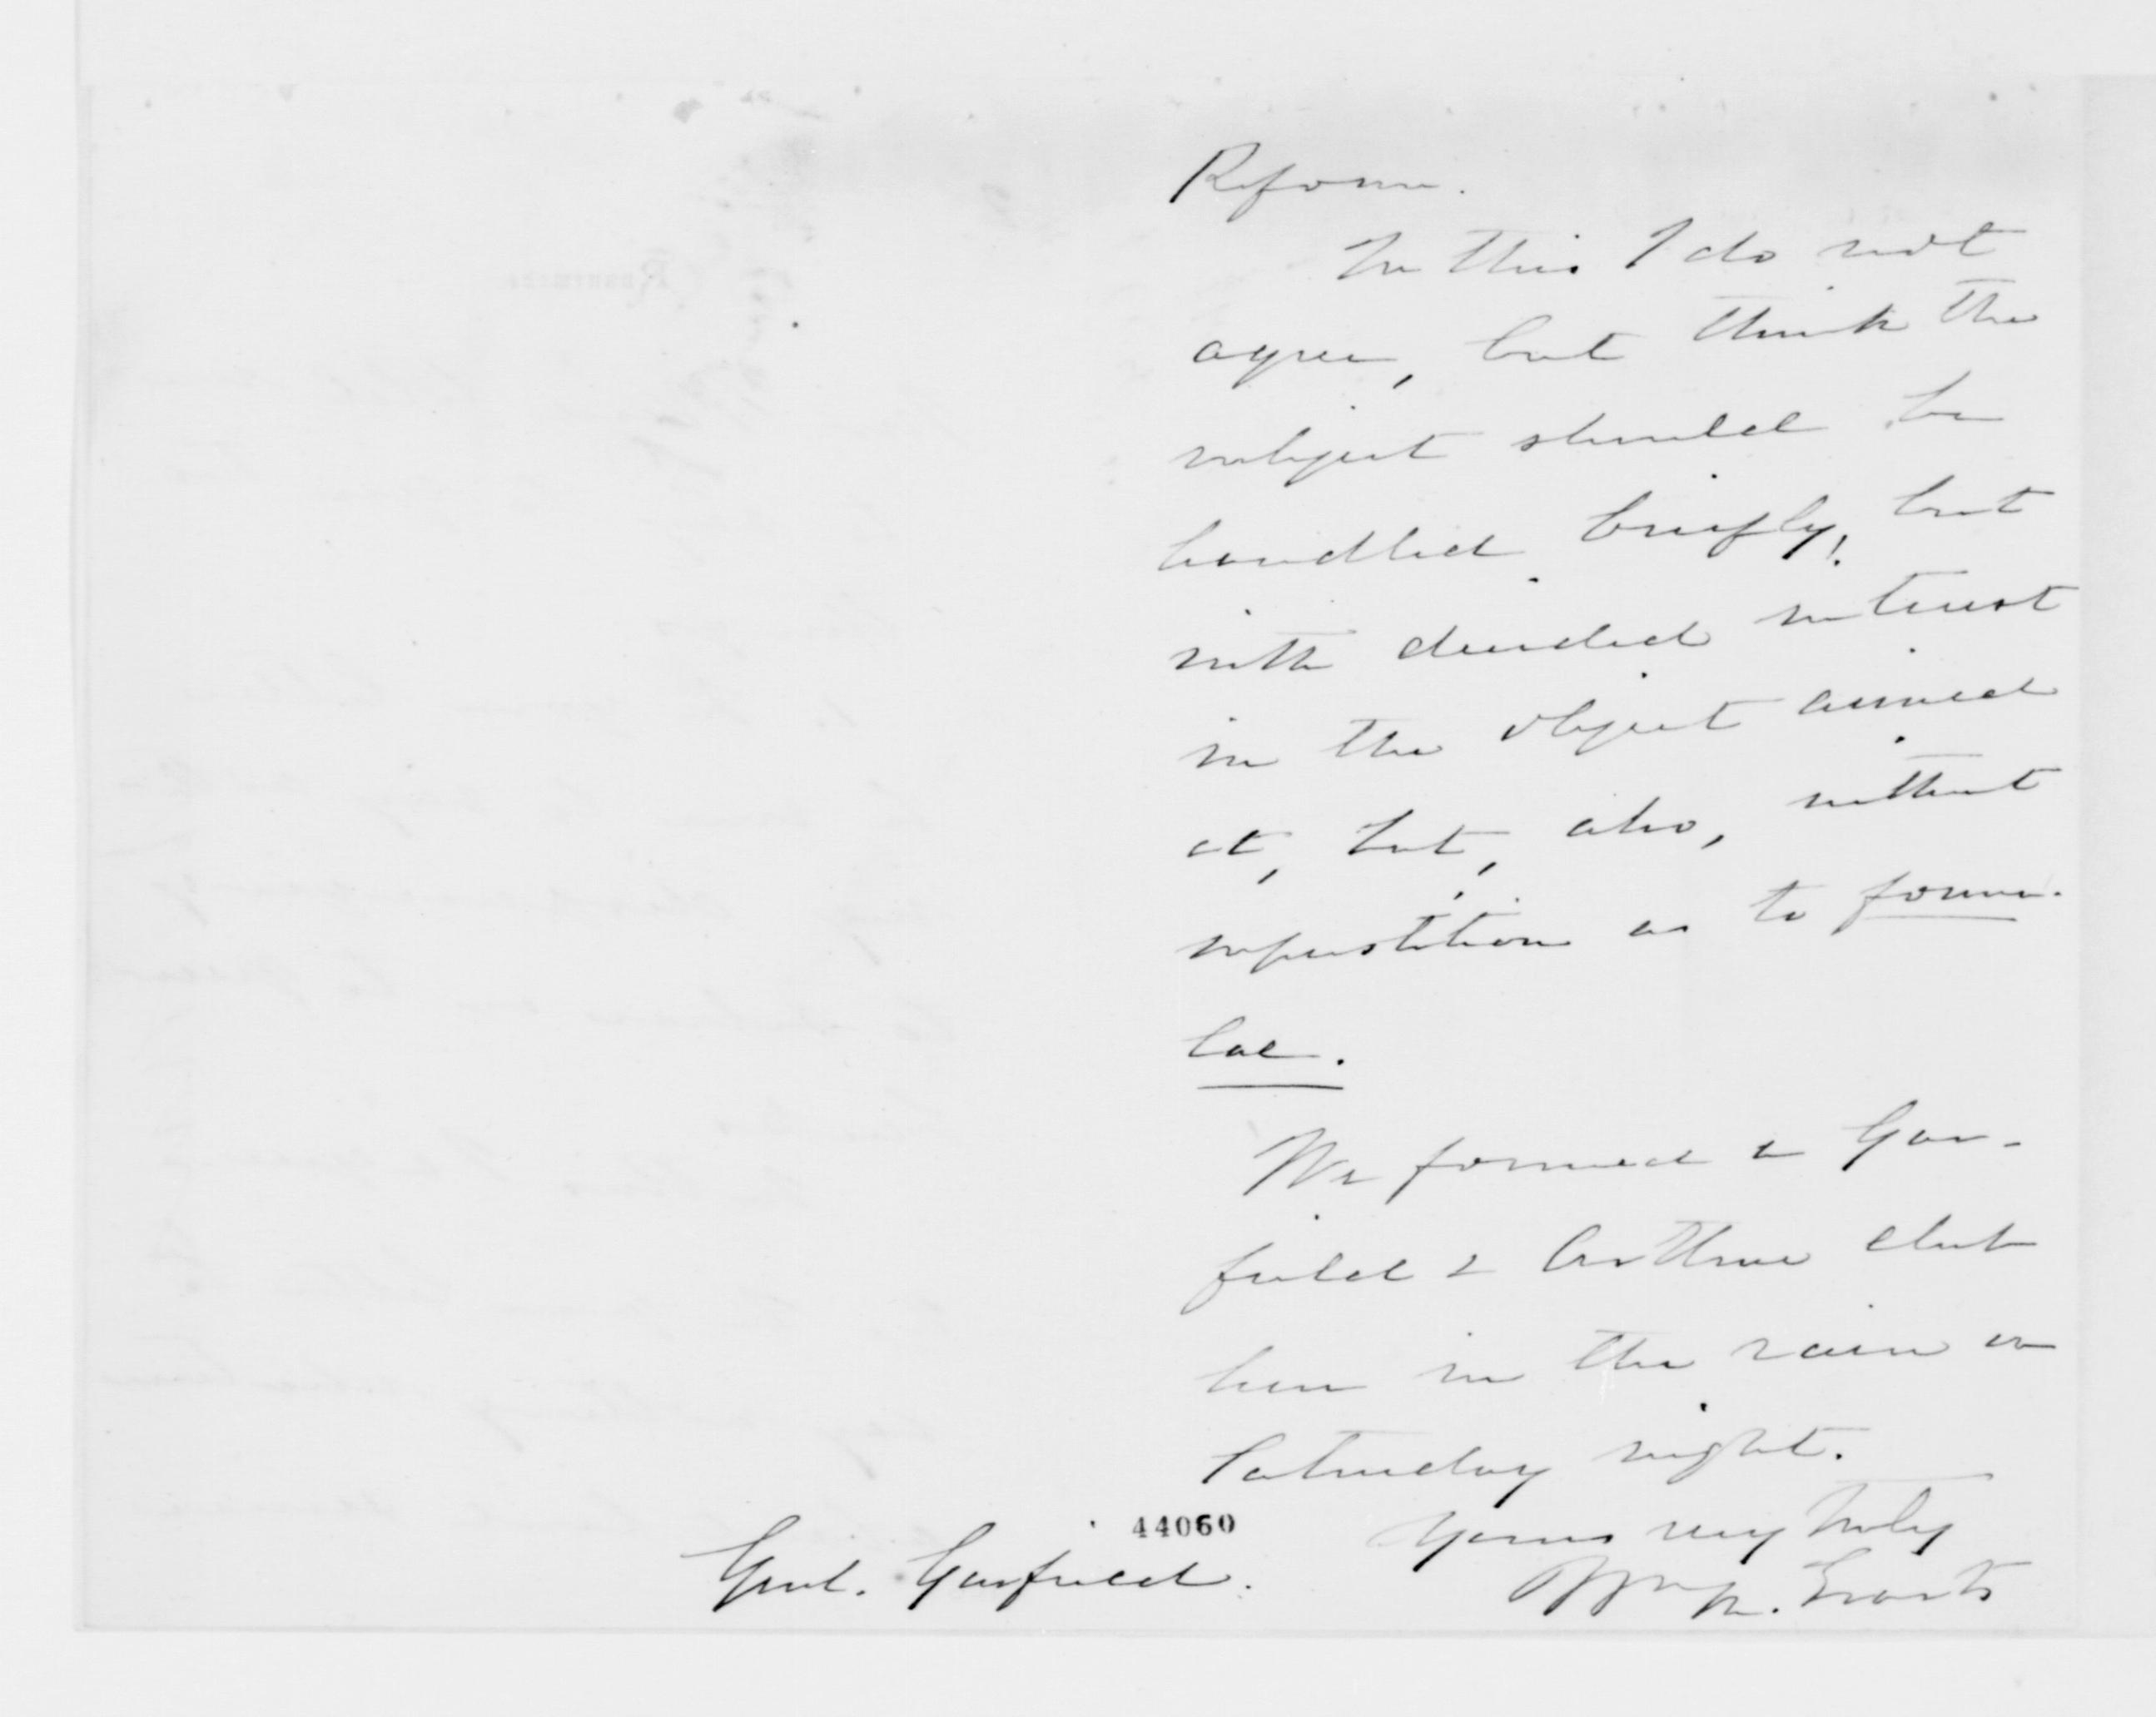 Reform.
In this I do not
agree, but think the
subject should be
handled briefly, but
with decided interest
in the object aimed
at, but, also, without
superstition as to formu-
lae.
We formed a Gar-
field & Arthur club
here in the rain on
Saturday night.
Yours very truly
Wm M. Evarts
44060
Genl. Garfield.